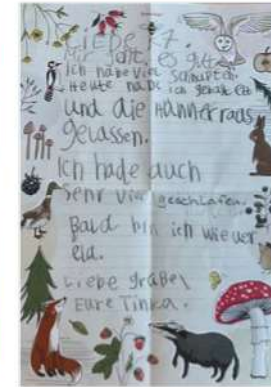 Liebe K7.
Mir geht es gut.
Ich habe viel
Heute habe ich
und die Hänner raus
gelassen.
Ich habe auch
Sehr viel geschlafen.
Bald bin ich wieder
eia.
Liebe grüße
Eure Tinka.